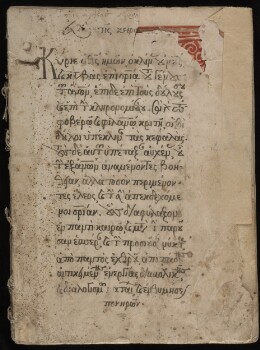 Κύριε ὁ θς ἡμῶν ὁ κλίνας οὐνοὺς
καὶ καταβὰς ἐπὶ σρία τοῦ γένους
τῶν ἀνων, ἔπιδε ἐπὶ τοὺς δούλους σου
καὶ ἐπὶ τὴν κληρονομίαν σου. σοὶ γὰρ τῶ
φοβερῶ καὶ φιλανω κριτῆ οἱ σοὶ
δοῦλοι ὑπέκλιναν τὰς κεφαλὰς,
τοὺς δὲ αὐτῶν ὑπέταξαν αὐχένας, οὐ
τὴν ἐξ ἀνων ἀναμένοντες βοή
θειαν, ἀλλὰ τὸ σὸν περιμένον
τες ἔλεος καὶ τὴν σὴν ἀπεκδεχόμε
νοι σρίαν. οὓς διαφύλαξον
ἐν παντὶ καιρῶ καὶ ἐν τῆ παρού
σα ἑσπέρα καὶ τῆ προσιούση νυκτὶ
ἀπὸ παντὸς ἐχθροῦ, ἀπὸ πάσης
ἀντικειμένης ἐνεργείας διαβολικῆς
καὶ διαλογισμῶν ματαίων καὶ ἐνθυμήσεων
πονηρῶν.